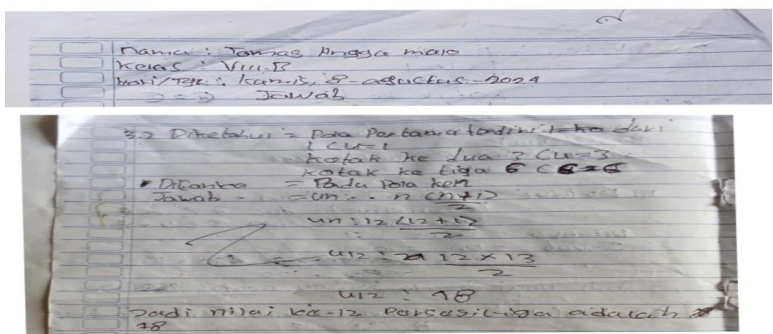 Nama : Tomas Angga malo
Kelas : VIII.B
Hari/Tgl : kamis, 8-agustus-2024
Jawab
3.) Diketahui = Pola Pertama terdiri dari
1 (U=1
kotak ke dua 3 (U=3
kotak ke tiga 6 (
Ditanya = Pada pola ken
Jawab = un : n (n+1)
2
un : 12 (12+1)
2
u12 : 12 x 13
2
u12 : 78
Jadi nilai ke-12 Persegitiga adalah
78